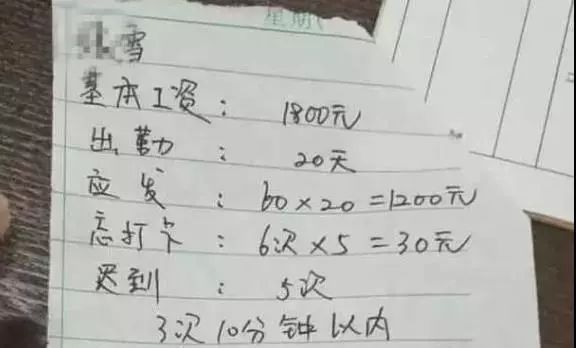 星期
雪
基本工资： 1800元
出勤： 20天
应发： 60×20=1200元
忘打卡： 6次×5=30元
迟到： 5次
3次10分钟以内